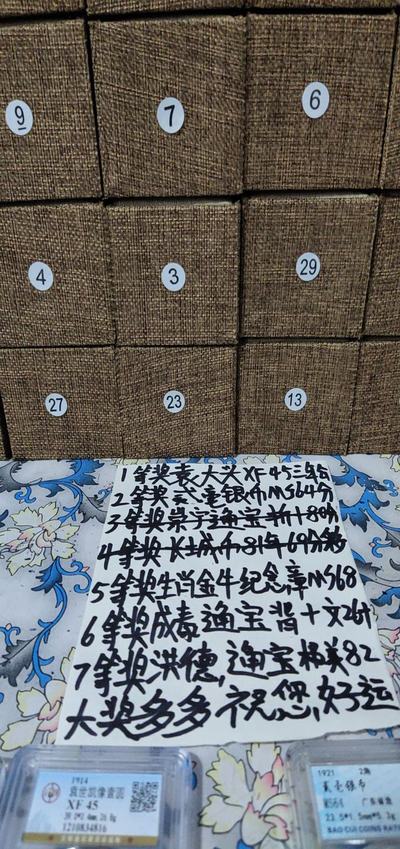 9
7
6
4
3
29
27
23
13
1等奖袁大头XF45三年
2等奖贰毫银币MS64分
3等奖崇宁通宝折十80分
4等奖长城币81年69分
5等奖生肖金牛纪念章MS68
6等奖咸丰通宝背十文
7等奖洪德,通宝极美82
大奖多多祝您,好运
1914
袁世凯像壹圆
XF 45
1210834816
1921
贰毫银币
MS64 广东省造
23.5*1.5mm*5.3g
BAO CUI COINS RATING